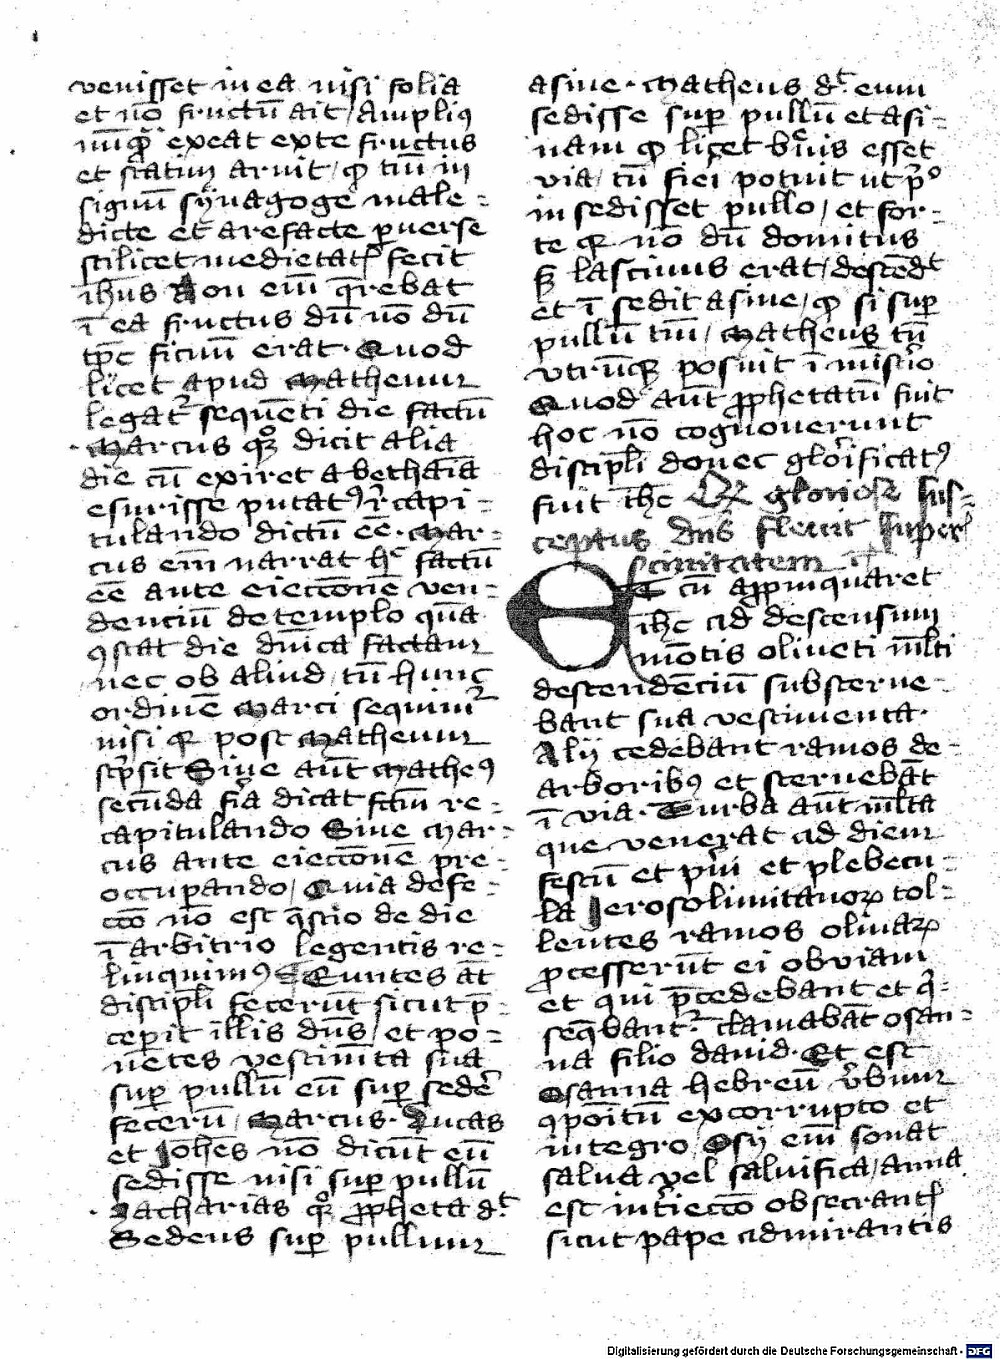 venisset in ea nisi folia
et nō fructū ait / Ampliꝰ
nūqͣ exeat exte fructus
et statim aruit / qͦ tn̄ in
signū synagoge male=
dicte et arefacte ꝑuerse
scilicet medietatꝭ fecit
ihūs Non em̄ q̄rebat
ī ea fructus dū nō dū
tp̄c ficuū erat. Quod
licet apud Matheum
legatͬ sequēti die factū
Marcus qꝫ dicit alia
die cū exiret a bethāia
esurisse putatꝰ r̄capi=
tulando dictū eē. Mar=
cus em̄ narrat hͨ factū
eē ante eiectōnē ven=
denciū de templo quā
ꝯstat die dn̄ica factam
nec ob aliud / tn̄ hunc
ordinē Marci sequimͬ
nisi qꝛ post Matheum
sc̄psit Siue aūt Matheꝰ
secūda fīa dicat fctm̄ re=
capitulando Siue Mar=
cus ante eiectōnē pre=
occupando / Quia defe=
ctō nō est q̄stio de die
ī arbitrio legentis re=
linquimꝰ Euntes āt
discipl̄i fecerūt sicut p̄=
cepit illis dn̄s / et po=
nētes vestimēta sua
suꝑ pullū eū suꝑ sedēͤ
fecerū / Marcus. Lucas
et Joh̄es nō dicūt eū
sedisse nisi suꝑ pullū
Zacharias qꝫ ꝓpheta d.ͭ
Sedens suꝑ pullum
asine. Matheus d.ͭ eum
sedisse suꝑ pullū et asi=
nam qͦ licet br̄uis esset
via / tn̄ fieri potuit ut p̄ͦ
insedisset pullo / et for=
te qꝛ nō dū domitus
sꝫ lasciuus erat / descēdͭ
et ī sedit asine / qͦ si suꝑ
pullū tm̄ / Matheus tn̄
vtrūqꝫ posuit ī mist̄io
Quod aūt ꝓphetatū fuit
hoc nō cognouerunt
discipl̄i donec glōrificatꝰ
fuit ih̄c Qꝛ gloriose sus=
ceptus dn̄s fleuit super
ciuitatem
Et cū aꝓpinquaret
ih̄c ad descensum
mōtis oliueti ml̄ti
descendēciū substerne=
bant sua vestimenta.
Alij cedebant ramos de=
arboribꝰ et sternebāt
ī via. Turba aūt ml̄ta
que venerat ad diem
festū et pͥui et plebecu=
la Jerosolimitanoꝝ tol=
lentes ramos oliuaꝝ
ꝓcesserūt ei obviam
et qui p̄cedebant et qͥ
seq̄bantͬ clamabāt osan=
na filio dauid. Et est
Osanna hebreū v̄bum
ꝯpoitū excorrupto et
integro / Osy em̄ sonat
salua vel saluifica / anna
est int̄iectō obsecrantꝭ
sicut pape admirantis
Digitalisierung gefördert durch die Deutsche Forschungsgemeinschaft - DFG